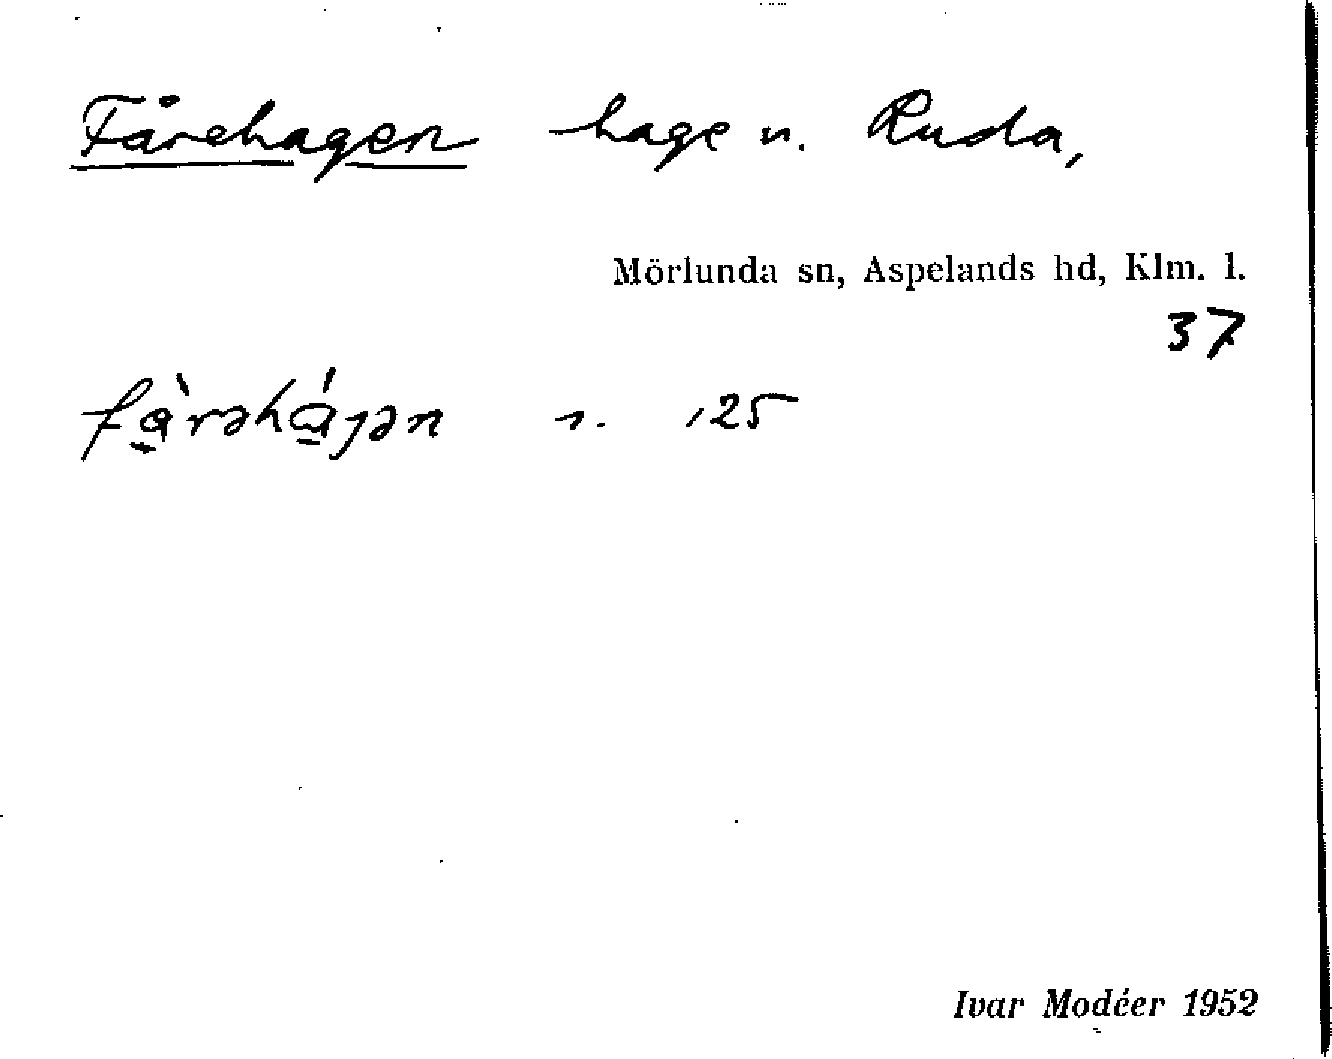 Fårehagen hage n. Ruda,
Mörlunda sn, Aspelands hd, Klm. l.
37
fà̱rəhá̱ɟən n. 125
Ivar Modéer 1952